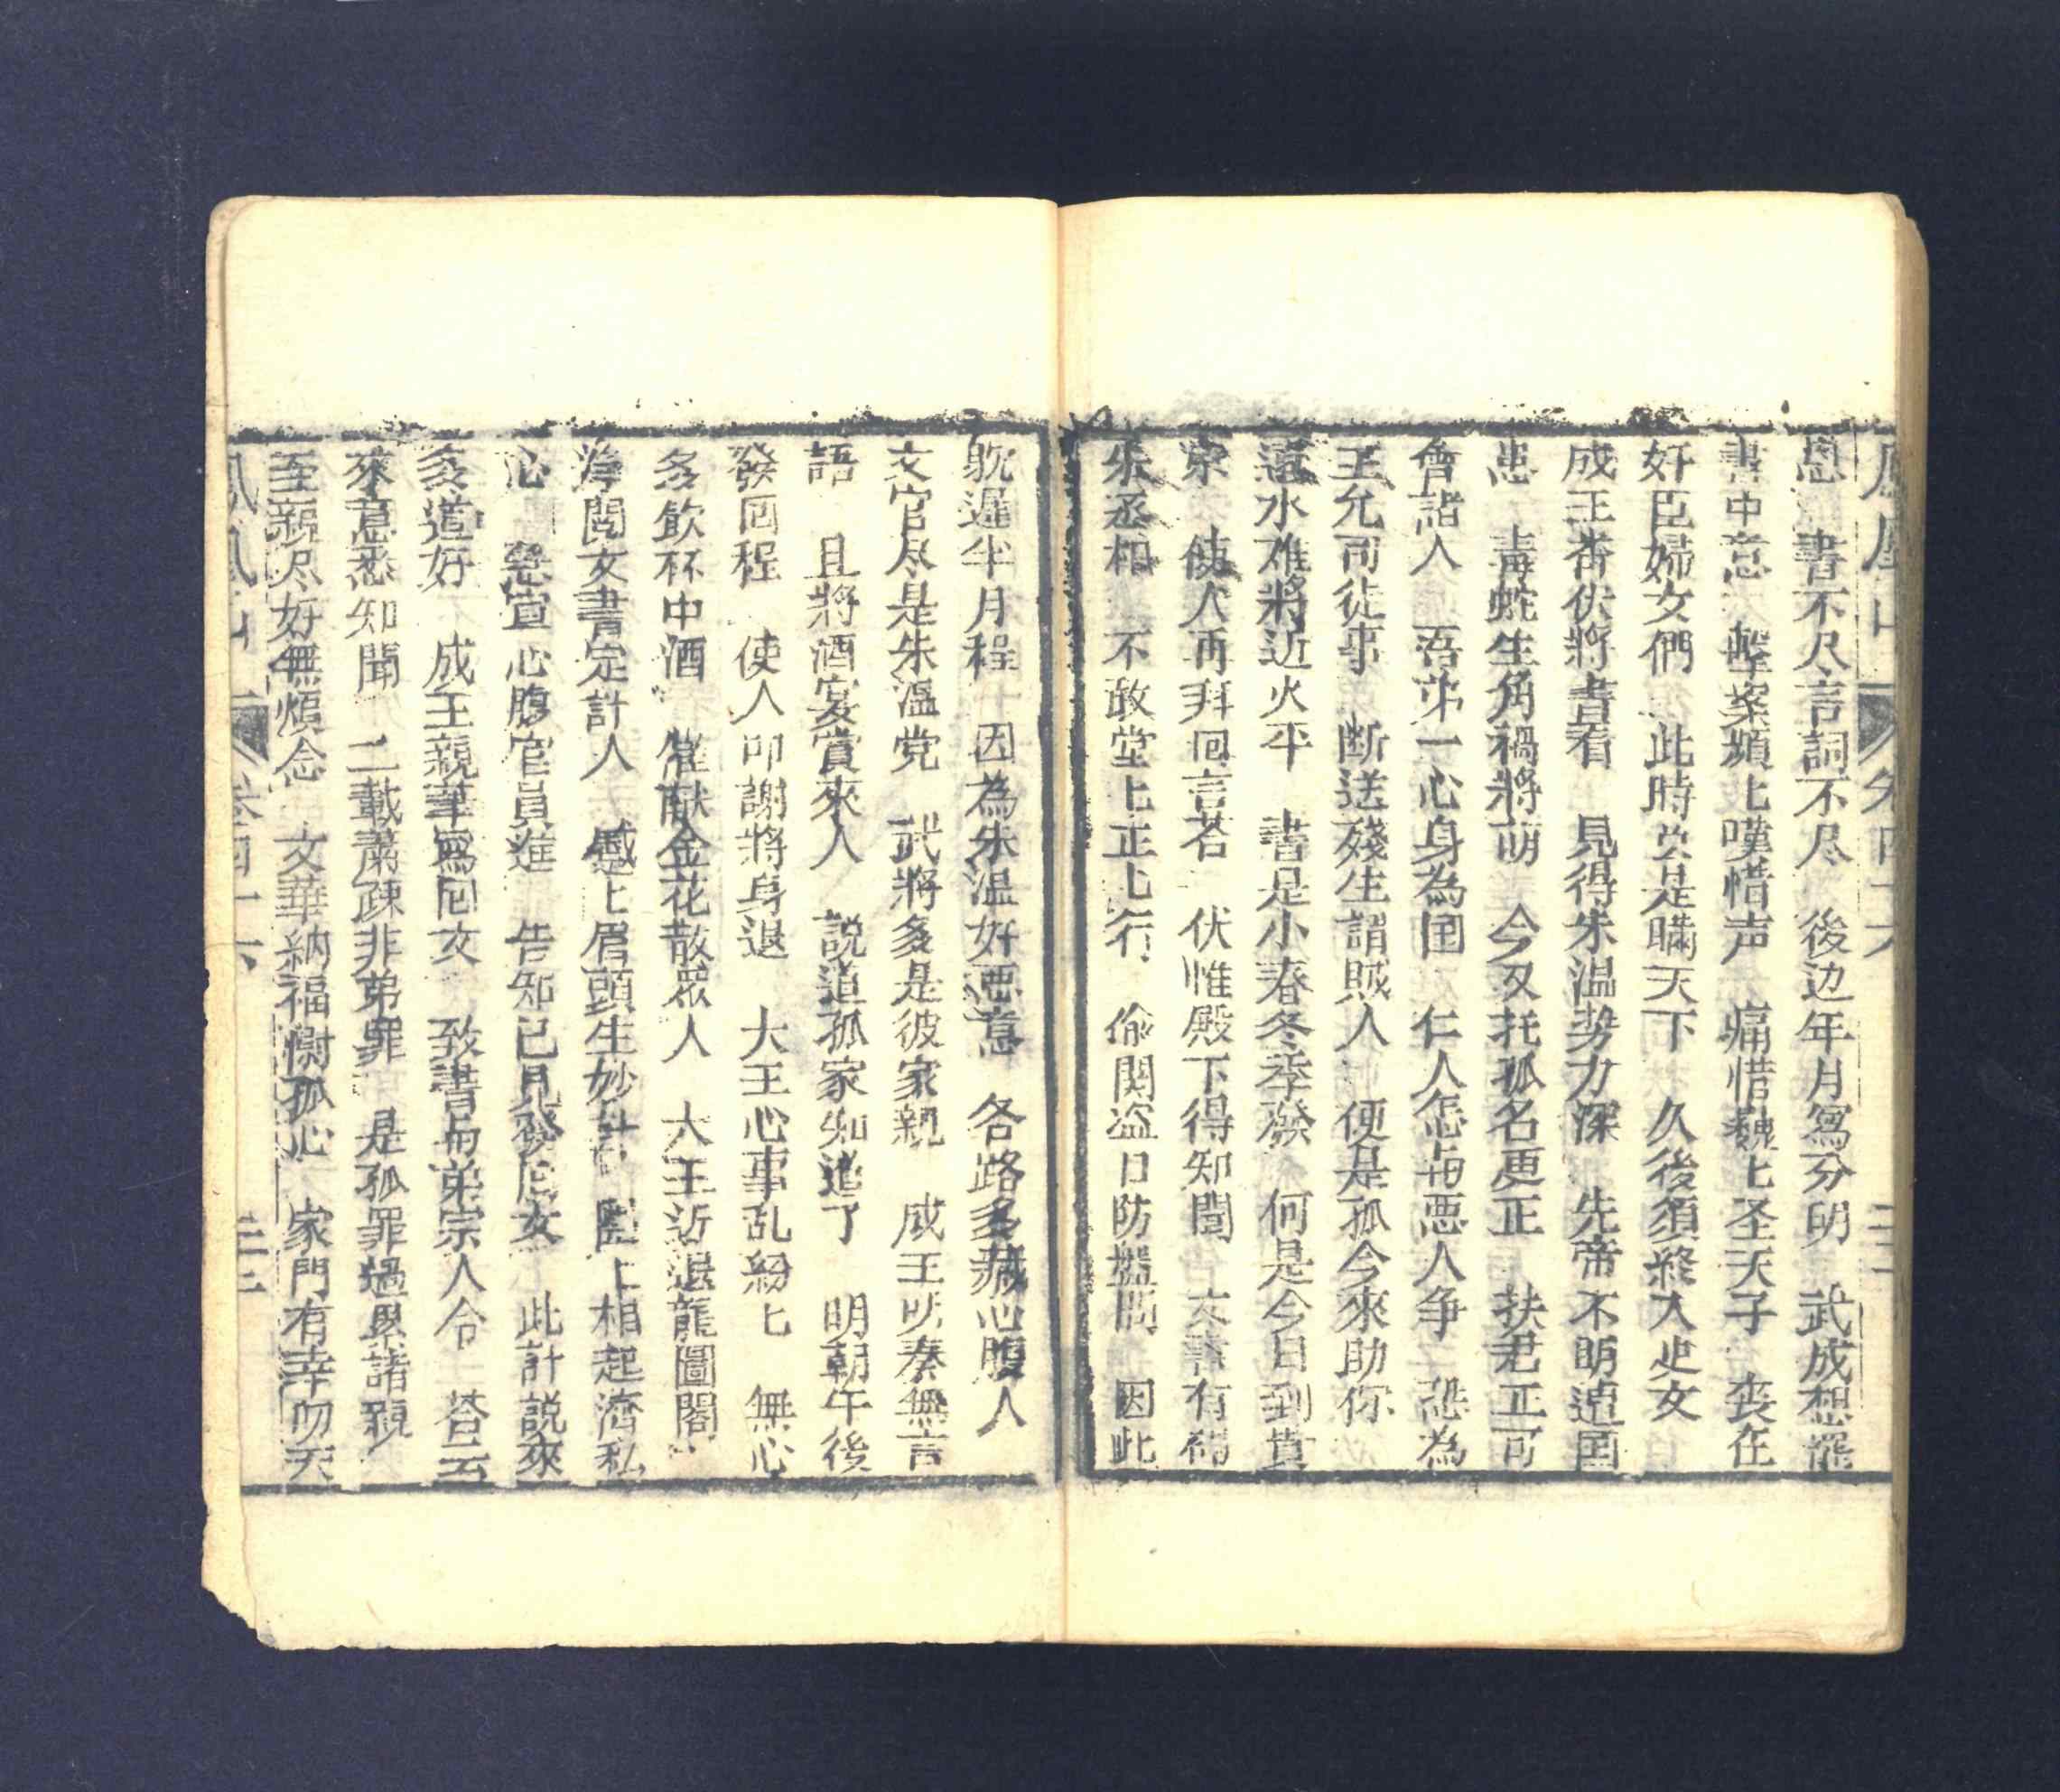 鳳凰山 卷四十六
恩 書不尺言詞不尽 後边年月寫分明 武成想罷
書中意 擊案頻上嘆惜声 痛惜魏七圣天子 丧在
奸臣婦女們 此時岂是瞞天下 久後須終入史文
成王看伏將書看 見得朱温势力深 先帝不明遺囯
患 毒蛇生角禍將萌 今又托孤名更正 扶君正可
會諸人 吾弟一心身為囯 仁人怎与悪人争 恐為
王允司徒事 断送殘生謂賊人 便是孤今來助你
遠水难將近火平 書是小春冬季發 何是今日到貴
宗 使人再拜囘言若 伏惟殿下得知聞 文書有稿
朱丞相 不敢堂上正七行 偷関盗口防盤問 因此
躭遲半月程 因為朱温好悪意 各路多藏心腹人
文官尽是朱温党 武將多是彼家親 成王听奏無言
語 且將酒宴賞來人 説道孤家知道了 明朝午後
發囘程 使人叩謝將身退 大王心事乱紛七 無心
多飲杯中酒 催献金花散眾人 大王近退龍圖閣
净閲文書定計人 感上眉頭生妙計 監上相起濟私
心 急宣心腹官員進 告知已見發囘文 此計説來
多道好 成王親筆寫囘文 致書与弟宗人合 答云
來意悉知聞 二載肅疎非弟罪 是孤罪過累諸親
至親尽好無煩念 文華納福慰孤心 家門有幸叨天
卷四十六